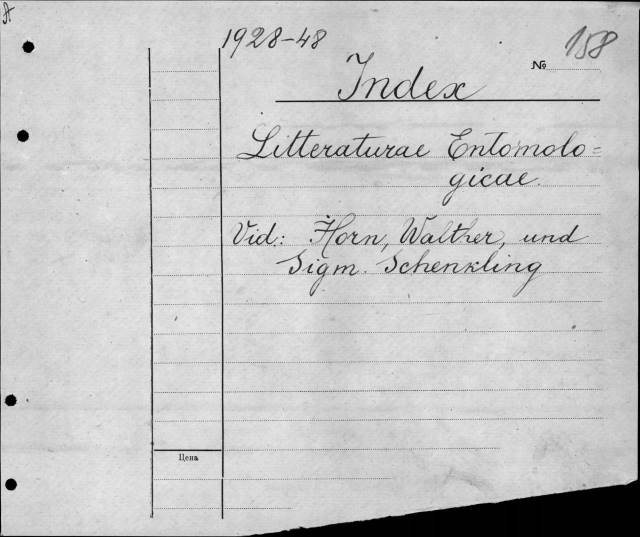 A
1928-48
№ 158
Index
Litteraturae Entomolo=
gicae.
Vid: Horn, Walther, und
Sigm. Schenkling
Цена